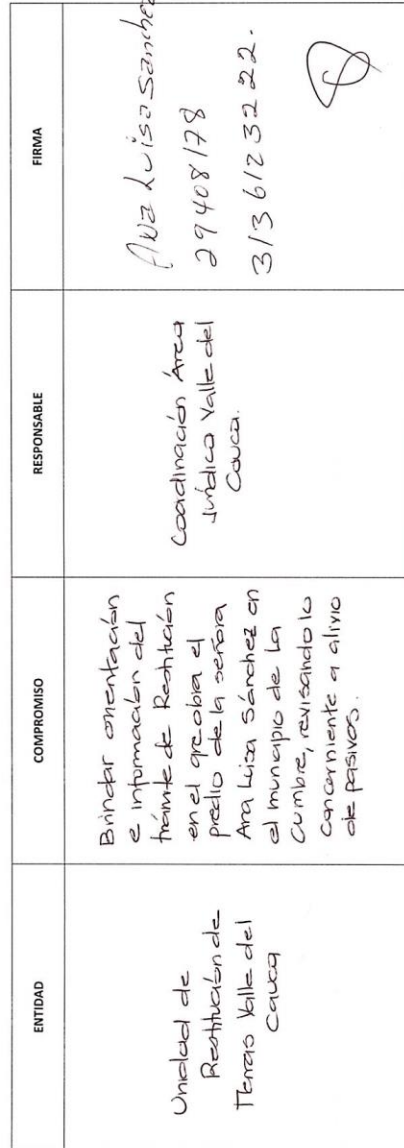 ENTIDAD
COMPROMISO
RESPONSABLE
FIRMA
Unidad de
Restitución de
Tierras Valle del
Cauca
Brindar orientación
e información del
trámite de Restitución
en el que obra el
predio de la señora
Ana Luisa Sánchez en
el municipio de La
Cumbre, revisando lo
concerniente a alivio
de pasivos.
Coordinación Área
Jurídica Valle del
Cauca.
Ana Luisa Sanchez
29408178
3136123222.